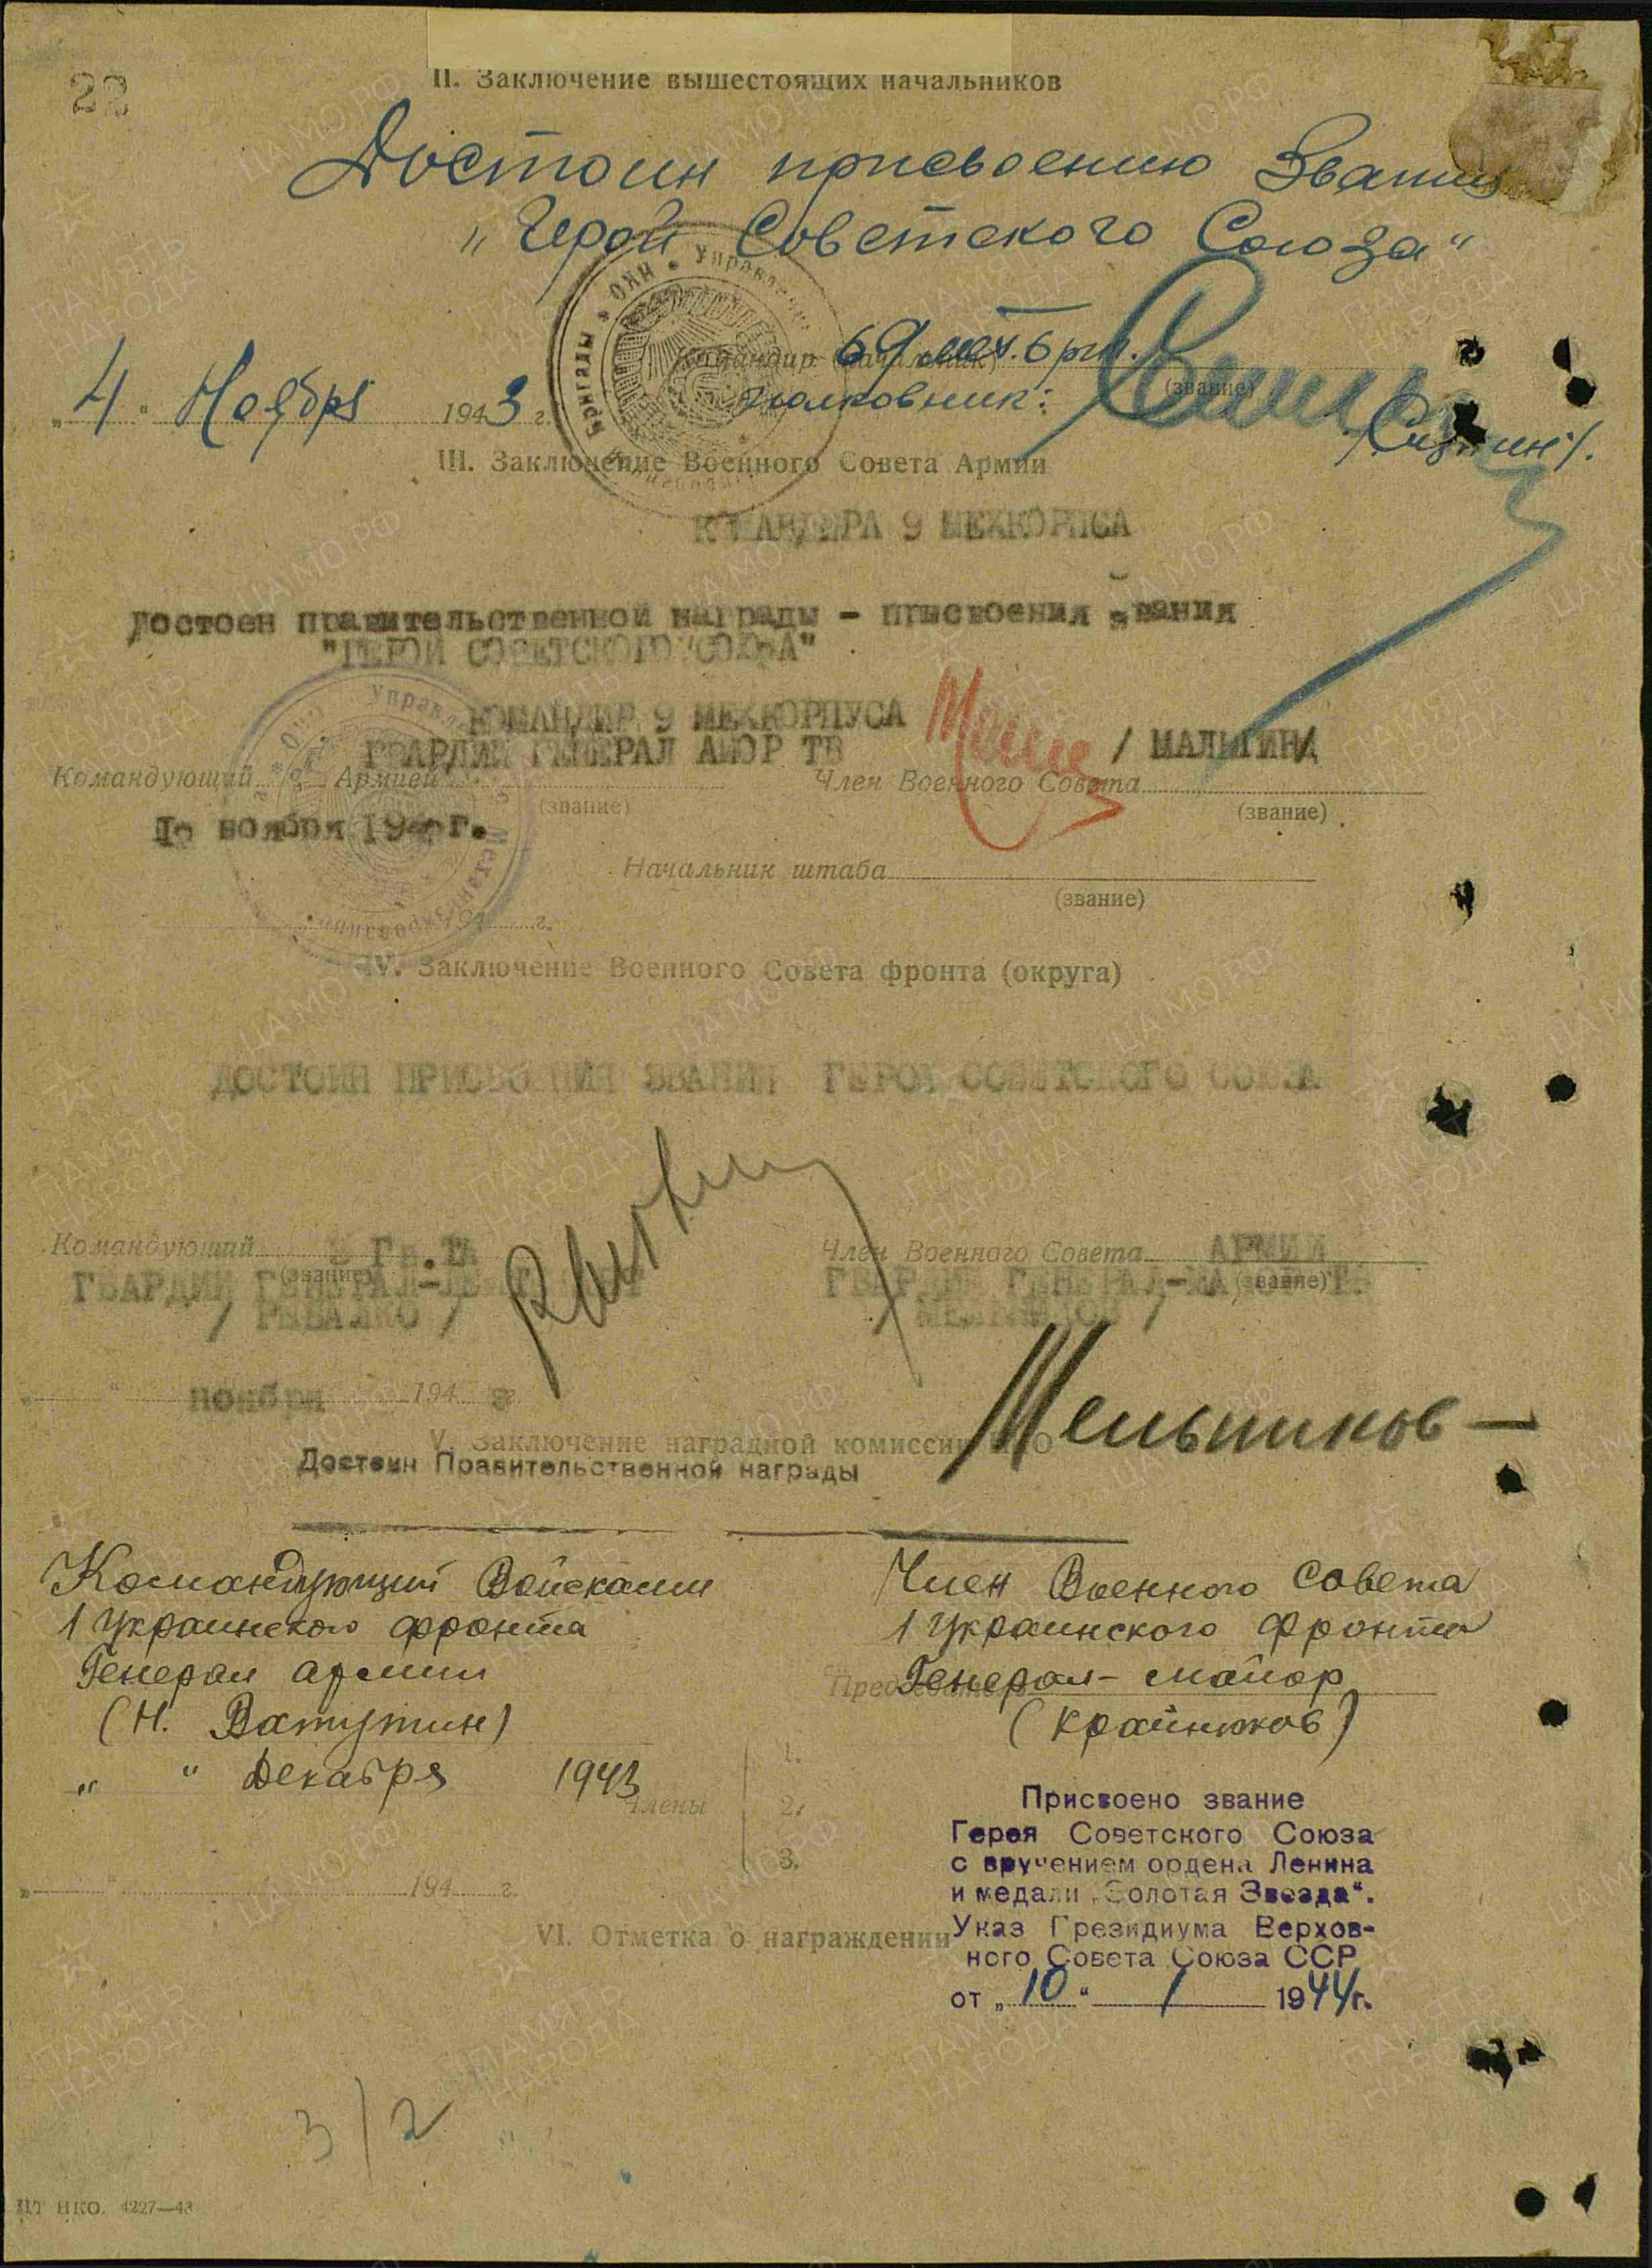 22
II. Заключение вышестоящих начальников
Достоин присвоению Звания
„Герой Советского Союза"
Командир (начальник) 69 мех. бриг.
(звание)
„4" Ноября 1943 г.
полковник:
/Сиянин/.
III. Заключение Военного Совета Армии
КОМАНДИРА 9 МЕХКОРПСА
достоен правительственной награды - присвоения звания
"ГЕРОЙ СОВЕТСКОГО СОЮЗА"
КОМАНДИР 9 МЕХКОРПУСА
ГВАРДИИ ГЕНЕРАЛ АЙОР ТВ / МАЛЫГИН/
Командующий Армией
Член Военного Совета
(звание)
(звание)
ноября 194 г.
Начальник штаба
(звание)
г.
IV. Заключение Военного Совета фронта (округа)
ДОСТОИН ПРИСВОЕНИЯ ЗВАНИЯ ГЕРОЯ СОВЕТСКОГО СОЮЗА
Командующий Гв.ТА
Член Военного Совета АРМИИ
(звание)
(звание)
ГВАРДИИ ГЕНЕРАЛ-ЛЕЙТЕНАНТ
ГВАРДИИ ГЕНЕРАЛ-МАЙОР ТВ
/ РЫБАЛКО /
/ МЕЛЬНИКОВ /
„ " ноября 194 3 г.
Мельников
V. Заключение наградной комиссии НКО
Достоин Правительственной награды
Командующий Войсками
1 Украинского фронта
Генерал армии
(Н. Ватутин)
„ " Декабря 1943
Член Военного Совета
1 Украинского фронта
Председатель
Генерал-майор
(Крайнюков)
Члены
1.
2.
3.
„ " 194 г.
VI. Отметка о награждении
Присвоено звание
Героя Советского Союза
с вручением ордена Ленина
и медали „Золотая Звезда".
Указ Президиума Верхов-
ного Совета Союза ССР
от „10" 1 1944г.
3/2
ЦТ НКО. 4227—43
ЦАМО.РФ
ПАМЯТЬ НАРОДА